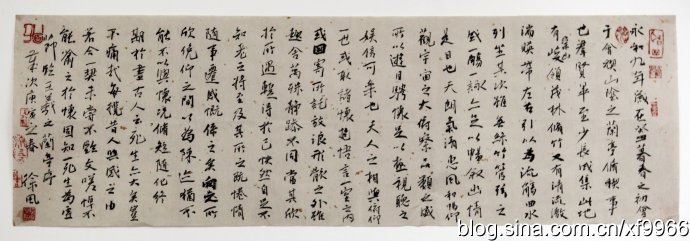 永和九年歲在癸丑暮春之初會
于會稽山陰之蘭亭脩稧事
也群賢畢至少長咸集此地
有崇山峻領茂林脩竹又有清流激
湍暎帶左右引以為流觴曲水
列坐其次雖無絲竹管弦之
盛一觴一詠亦足以暢敘幽情
是日也天朗氣清惠風和暢仰
觀宇宙之大俯察品類之盛
所以遊目騁懷足以極視聽之
娛信可樂也夫人之相與俯仰
一世或取諸懷抱悟言一室之內
或因寄所託放浪形骸之外雖
趣舍萬殊靜躁不同當其欣
於所遇暫得於己怏然自足不
知老之將至及其所之既惓情
隨事遷感慨係之矣向之所
欣俛仰之間以為陳迹猶不
能不以之興懷況脩短隨化終
期於盡古人云死生亦大矣豈
不痛哉每攬昔人興感之由
若合一契未嘗不臨文嗟悼不
能喻之於懷固知一死生為虛
節臨王羲之蘭亭序
歲次庚寅之春 徐風
blog.sina.com.cn/xf9966